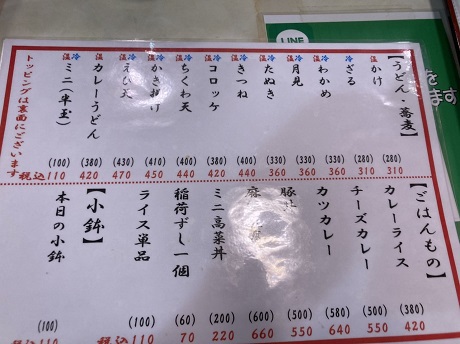 LINE
【うどん・蕎麦】
温 かけ (280) 310
冷 ざる (280) 310
温冷 わかめ (330) 360
温冷 月見 (330) 360
温冷 たぬき (330) 360
温冷 きつね (400) 440
温冷 コロッケ (380) 420
温冷 ちくわ天 (400) 440
温冷 かき揚げ (410) 450
温冷 えび天 (430) 470
温 カレーうどん (380) 420
温冷 ミニ(半玉) (100) 税込110
トッピングは裏面にございます
【ごはんもの】
カレーライス (380) 420
チーズカレー (500) 550
カツカレー (580) 640
豚 (500) 550
(600) 660
ミニ高菜丼 (200) 220
稲荷ずし一個 (60) 70
ライス単品 (100) 税込110
【小鉢】
本日の小鉢 (100) 税込110
を
ます